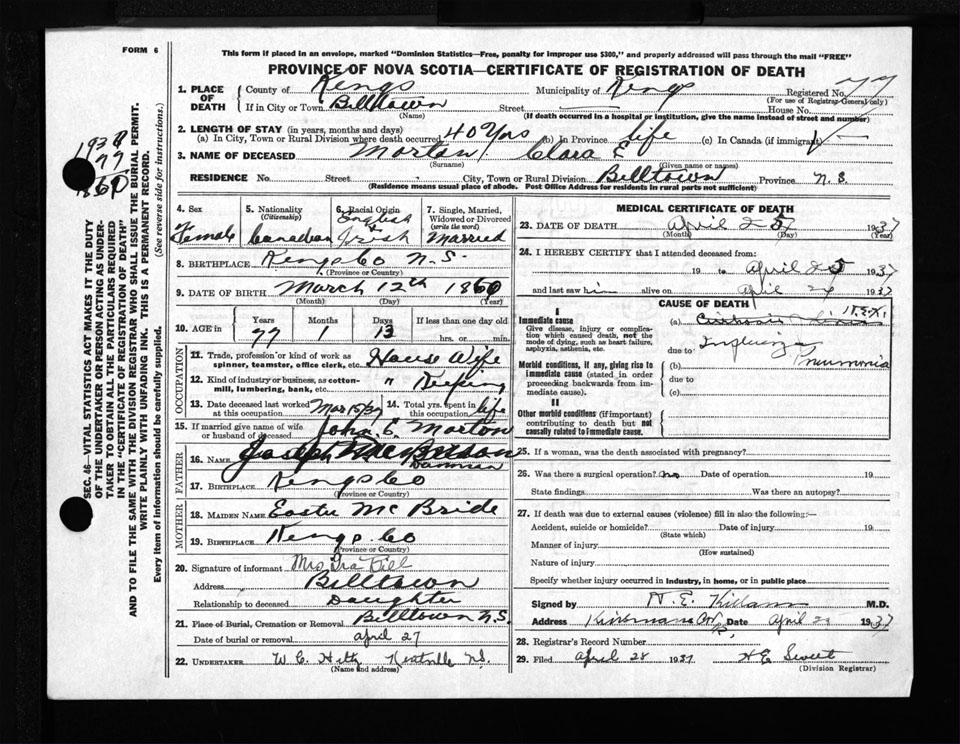 FORM 6
This form if placed in an envelope, marked "Dominion Statistics—Free, penalty for improper use $300," and properly addressed will pass through the mail "FREE"
PROVINCE OF NOVA SCOTIA—CERTIFICATE OF REGISTRATION OF DEATH
1. PLACE OF DEATH
County of Kings Municipality of Kings Registered No. 77
(For use of Registrar-General only)
If in City or Town Billtown Street House No.
(Name) (If death occurred in a hospital or institution, give the name instead of street and number)
2. LENGTH OF STAY (in years, months and days)
(a) In City, Town or Rural Division where death occurred 40 Yrs (b) In Province life (c) In Canada (if immigrant)
3. NAME OF DECEASED Morton Clara E
(Surname) (Given name or names)
RESIDENCE No. Street City, Town or Rural Division Billtown Province N. S.
(Residence means usual place of abode. Post Office Address for residents in rural parts not sufficient)
193
77
1860
SEC. 46—VITAL STATISTICS ACT MAKES IT THE DUTY
OF THE UNDERTAKER OR PERSON ACTING AS UNDER-
TAKER TO OBTAIN ALL THE PARTICULARS REQUIRED
IN THE "CERTIFICATE OF REGISTRATION OF DEATH"
AND TO FILE THE SAME WITH THE DIVISION REGISTRAR WHO SHALL ISSUE THE BURIAL PERMIT.
WRITE PLAINLY WITH UNFADING INK. THIS IS A PERMANENT RECORD.
Every item of information should be carefully supplied. (See reverse side for instructions.)
4. Sex Female
5. Nationality (Citizenship) Canadian
6. Racial Origin English & Irish
7. Single, Married, Widowed or Divorced (write the word) Married
8. BIRTHPLACE Kings Co N.S.
(Province or Country)
9. DATE OF BIRTH March 12th 1860
(Month) (Day) (Year)
10. AGE in Years 77 Months 1 Days 13 If less than one day old hrs. or min.
OCCUPATION
11. Trade, profession or kind of work as spinner, teamster, office clerk, etc. House Wife
12. Kind of industry or business, as cotton-mill, lumbering, bank, etc. " Keeping
13. Date deceased last worked at this occupation Mar 15/37 14. Total yrs. spent in this occupation life
15. If married give name of wife or husband of deceased John E. Morton
FATHER
16. Name Joseph
17. Birthplace Kings Co
(Province or Country)
MOTHER
18. Maiden Name Easter McBride
19. Birthplace Kings Co
(Province or Country)
20. Signature of informant Mrs Ira Bill
Address Billtown
Relationship to deceased Daughter
21. Place of Burial, Cremation or Removal Billtown N.S.
Date of burial or removal april 27
22. UNDERTAKER W. C. Kentville N.S.
(Name and address)
MEDICAL CERTIFICATE OF DEATH
23. DATE OF DEATH April 25 1937
(Month) (Day) (Year)
24. I HEREBY CERTIFY that I attended deceased from:
19 to April 25 1937
and last saw him alive on April 24 1937
CAUSE OF DEATH
I
Immediate cause
Give disease, injury or complication which caused death, not the mode of dying, such as heart failure, asphyxia, asthenia, etc.
(a)
due to Influenza
Morbid conditions, if any, giving rise to immediate cause (stated in order proceeding backwards from immediate cause).
(b) Pneumonia
due to
(c)
II
Other morbid conditions (if important) contributing to death but not causally related to immediate cause.
25. If a woman, was the death associated with pregnancy?
26. Was there a surgical operation? no Date of operation 19
State findings Was there an autopsy?
27. If death was due to external causes (violence) fill in also the following:—
Accident, suicide or homicide? Date of injury 19
(State which)
Manner of injury
(How sustained)
Nature of injury
Specify whether injury occurred in industry, in home, or in public place
Signed by M.D.
Address Date April 1937
28. Registrar's Record Number
29. Filed April 28 1937 H E Sweet
(Division Registrar)